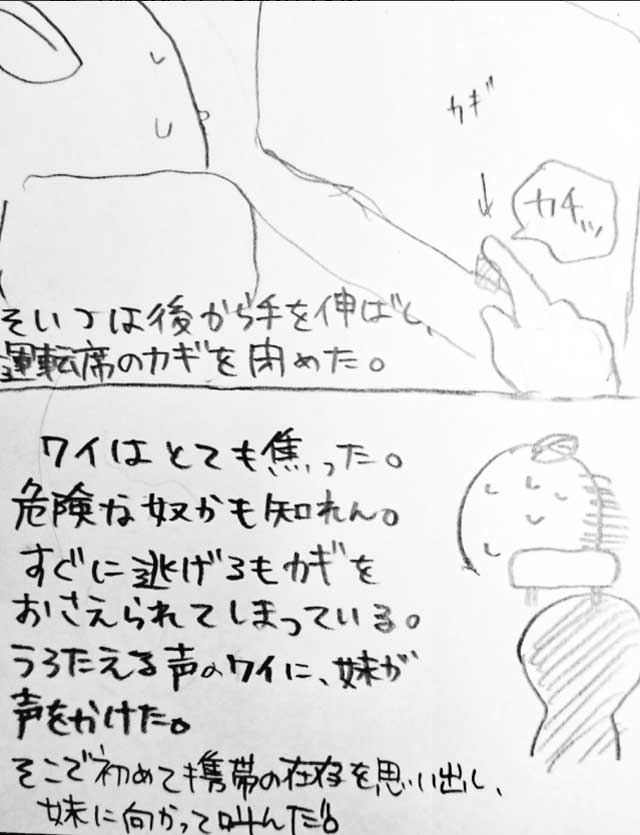 カギ
カチッ
そいつは後から手を伸ばし、
運転席のカギを閉めた。
ワイはとても焦った。
危険な奴かも知れん。
すぐに逃げるもカギを
おさえられてしまっている。
うろたえる声のワイに、妹が
声をかけた。
そこで初めて携帯の存在を思い出し、
妹に向かって叫んだ!!